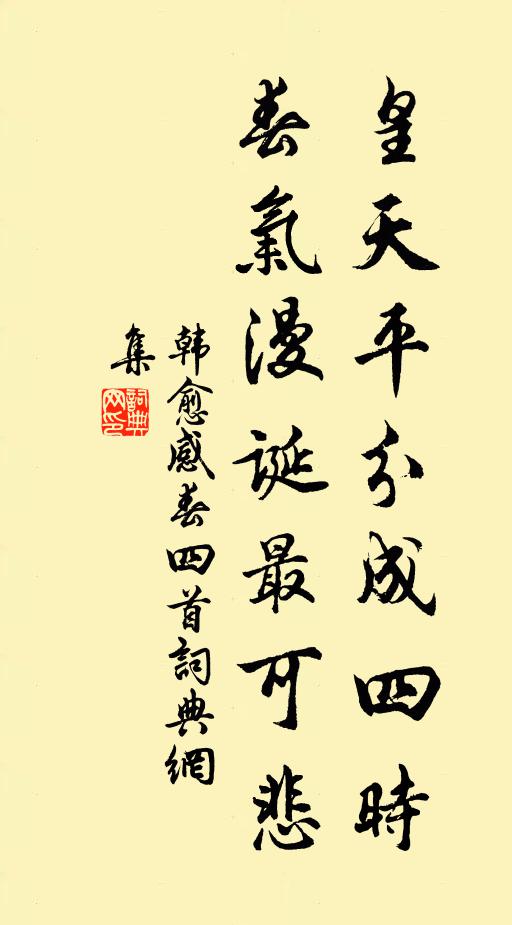 皇天平分成四時
春氣漫誕最可悲
韩愈感春四首詞典網
集
詞典网印